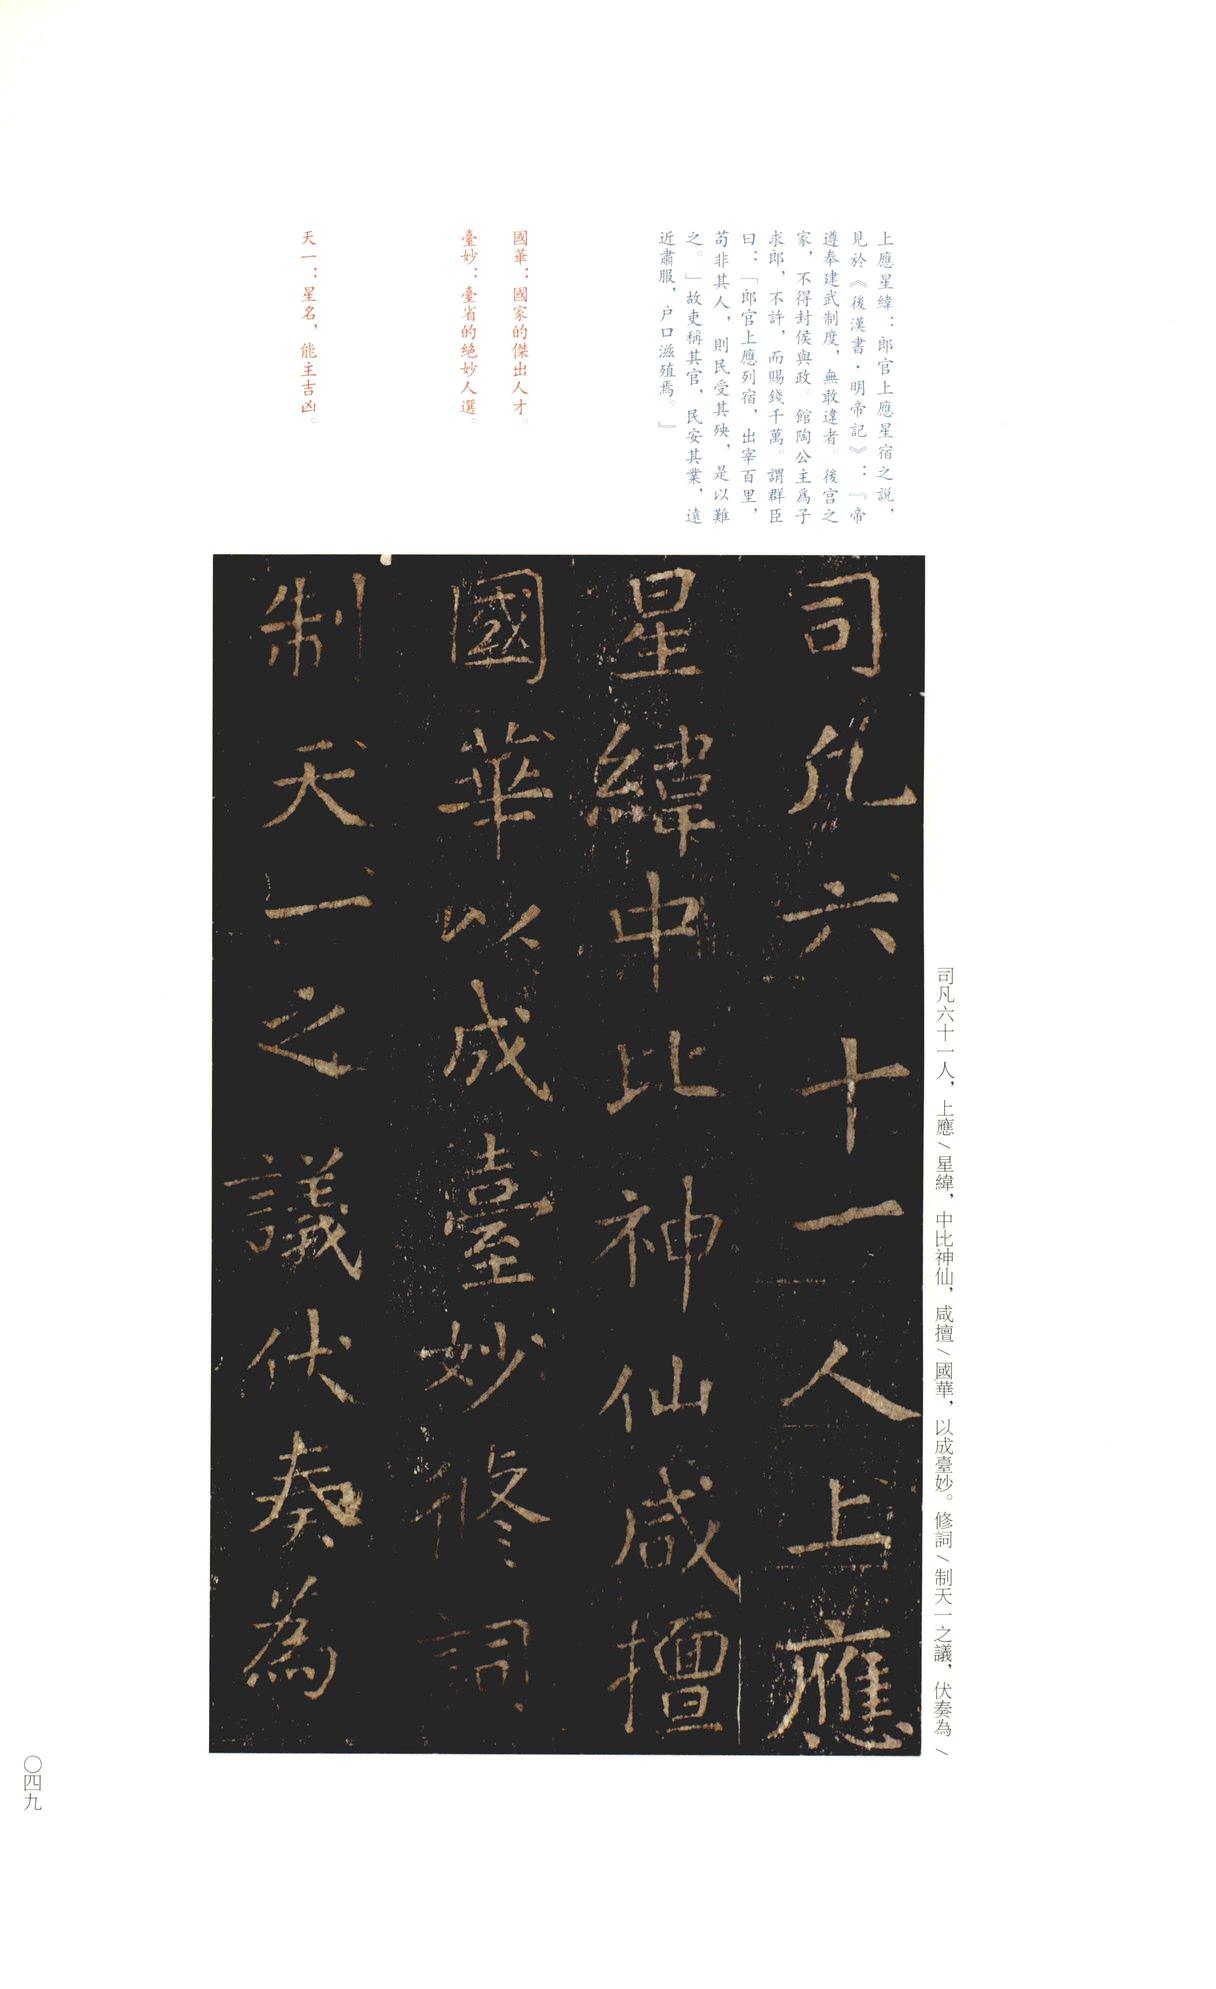 上應星緯：郎官上應星宿之説，
見於《後漢書·明帝記》：『帝
遵奉建武制度，無敢違者。後宫之
家，不得封侯與政。館陶公主爲子
求郎，不許，而賜錢千萬。謂群臣
曰：「郎官上應列宿，出宰百里，
苟非其人，則民受其殃，是以難
之。」故吏稱其官，民安其業，遠
近肅服，户口滋殖焉。』
國華：國家的傑出人才。
臺妙：臺省的絶妙人選。
天一：星名，能主吉凶。
司凡六十一人，上應／星緯，中比神仙，咸擅／國華，以成臺妙。修詞／制天一之議，伏奏為／
司凡六十一人上應
星緯中比神仙咸擅
國華以成臺妙修詞
制天一之議伏奏為
〇四九